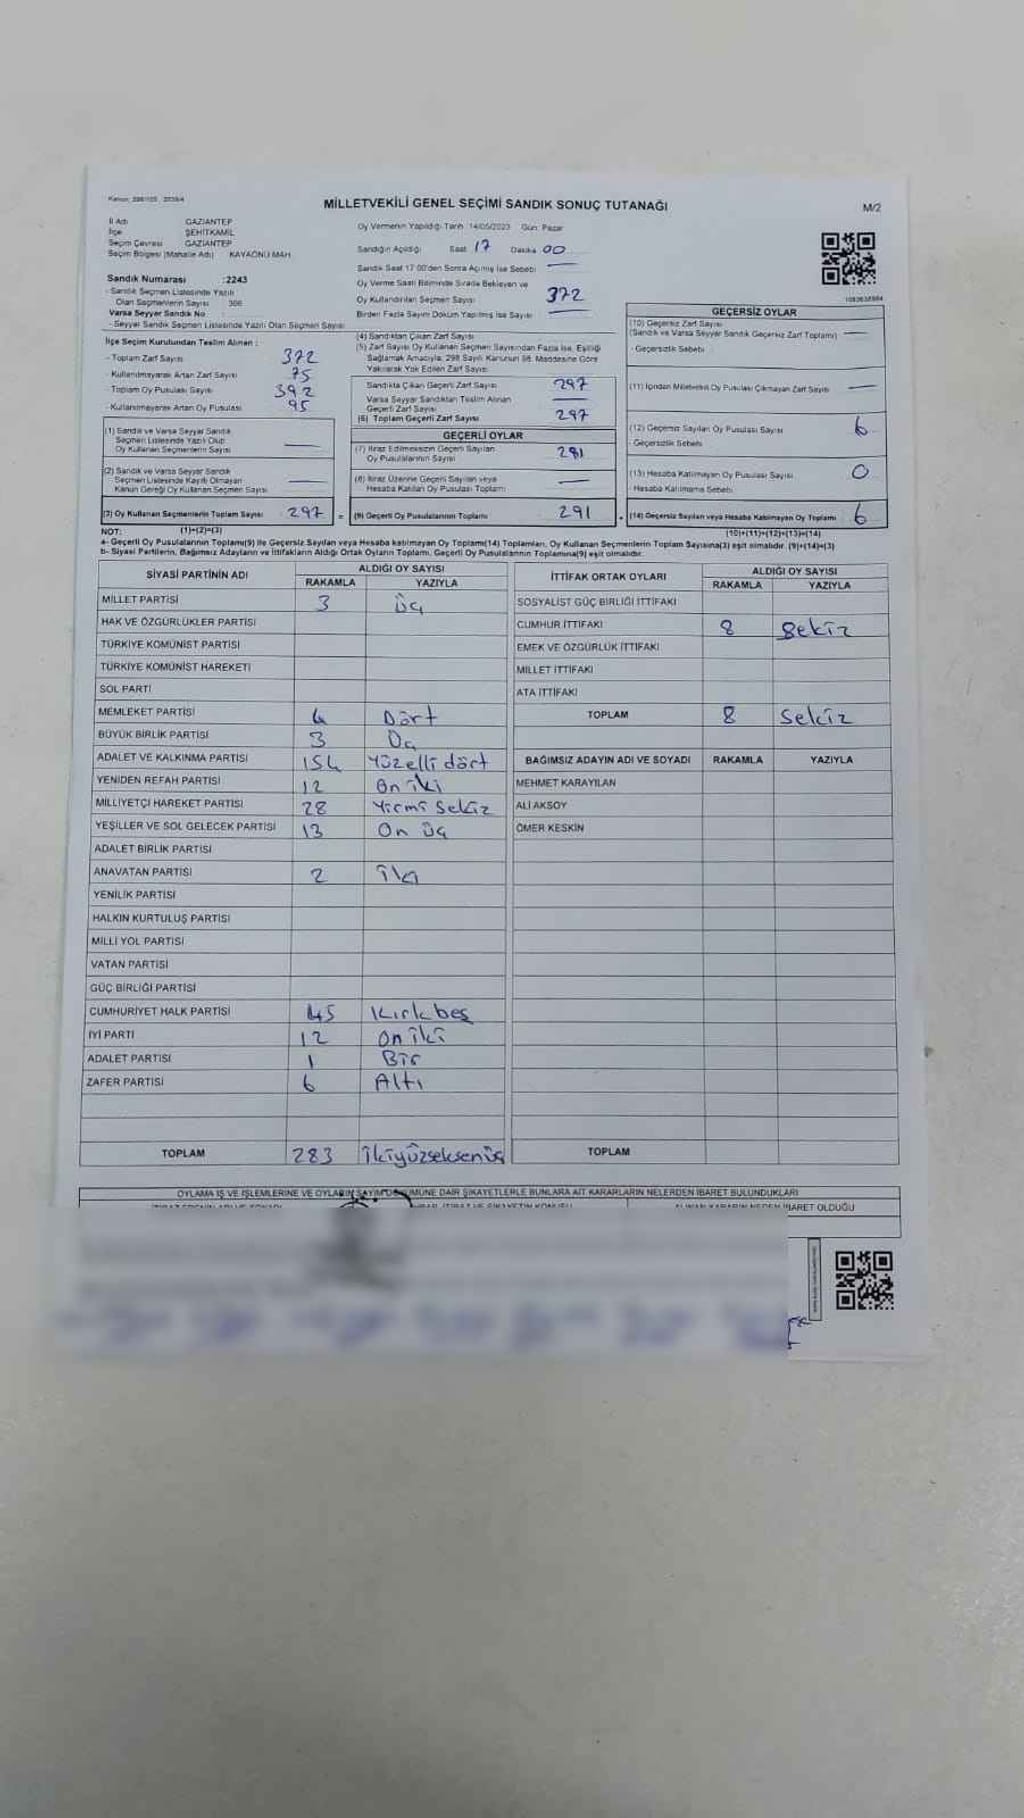 MİLLETVEKİLİ GENEL SEÇİMİ SANDIK SONUÇ TUTANAĞI
M/2
İl Adı GAZİANTEP
İlçe ŞEHİTKAMİL
Seçim Çevresi GAZİANTEP
Seçim Bölgesi (Mahalle Adı) KAYAÖNÜ MAH.
Oy Vermenin Yapıldığı Tarih 14/05/2023 Gün: Pazar
Sandığın Açıldığı Saat 17 Dakika 00
Sandık Saat 17:00'den Sonra Açılmış İse Sebebi
Oy Verme Saati Bitiminde Sırada Bekleyen ve
Oy Kullandırılan Seçmen Sayısı 372
Birden Fazla Sayım Döküm Yapılmış İse Sayısı
Sandık Numarası :2243
- Sandık Seçmen Listesinde Yazılı
Olan Seçmenlerin Sayısı
Varsa Seyyar Sandık No
- Seyyar Sandık Seçmen Listesinde Yazılı Olan Seçmen Sayısı
İlçe Seçim Kurulundan Teslim Alınan :
- Toplam Zarf Sayısı 372
- Kullanılmayarak Artan Zarf Sayısı 75
- Toplam Oy Pusulası Sayısı 392
- Kullanılmayarak Artan Oy Pusulası 95
(1) Sandık ve Varsa Seyyar Sandık
Seçmen Listesinde Yazılı Olup
Oy Kullanan Seçmenlerin Sayısı
(2) Sandık ve Varsa Seyyar Sandık
Seçmen Listesinde Kayıtlı Olmayan
Kanun Gereği Oy Kullanan Seçmen Sayısı
(3) Oy Kullanan Seçmenlerin Toplam Sayısı 297 =
(1)+(2)=(3)
(4) Sandıktan Çıkan Zarf Sayısı
(5) Zarf Sayısı Oy Kullanan Seçmen Sayısından Fazla İse, Eşitliği
Sağlamak Amacıyla, 298 Sayılı Kanunun 98. Maddesine Göre
Yakılarak Yok Edilen Zarf Sayısı
Sandıkta Çıkan Geçerli Zarf Sayısı 297
Varsa Seyyar Sandıktan Teslim Alınan
Geçerli Zarf Sayısı
(6) Toplam Geçerli Zarf Sayısı 297
GEÇERLİ OYLAR
(7) İtiraz Edilmeksizin Geçerli Sayılan
Oy Pusulalarının Sayısı 291
(8) İtiraz Üzerine Geçerli Sayılan veya
Hesaba Katılan Oy Pusulası Toplamı
(9) Geçerli Oy Pusulalarının Toplamı 291 +
GEÇERSİZ OYLAR
(10) Geçersiz Zarf Sayısı
(Sandık ve Varsa Seyyar Sandık Geçersiz Zarf Toplamı)
- Geçersizlik Sebebi
(11) İçinden Milletvekili Oy Pusulası Çıkmayan Zarf Sayısı
(12) Geçersiz Sayılan Oy Pusulası Sayısı 6
- Geçersizlik Sebebi
(13) Hesaba Katılmayan Oy Pusulası Sayısı 0
- Hesaba Katılmama Sebebi
(14) Geçersiz Sayılan veya Hesaba Katılmayan Oy Toplamı 6
(10)+(11)+(12)+(13)=(14)
NOT:
a- Geçerli Oy Pusulalarının Toplamı(9) ile Geçersiz Sayılan veya Hesaba katılmayan Oy Toplamı(14) Toplamları, Oy Kullanan Seçmenlerin Toplam Sayısına(3) eşit olmalıdır. (9)+(14)=(3)
b- Siyasi Partilerin, Bağımsız Adayların ve İttifakların Aldığı Ortak Oyların Toplamı, Geçerli Oy Pusulalarının Toplamına(9) eşit olmalıdır.
SİYASİ PARTİNİN ADI ALDIĞI OY SAYISI
RAKAMLA YAZIYLA
MİLLET PARTİSİ 3 üç
HAK VE ÖZGÜRLÜKLER PARTİSİ
TÜRKİYE KOMÜNİST PARTİSİ
TÜRKİYE KOMÜNİST HAREKETİ
SOL PARTİ
MEMLEKET PARTİSİ 4 Dört
BÜYÜK BİRLİK PARTİSİ 3 Üç
ADALET VE KALKINMA PARTİSİ 154 Yüzelli dört
YENİDEN REFAH PARTİSİ 12 on iki
MİLLİYETÇİ HAREKET PARTİSİ 28 Yirmi Sekiz
YEŞİLLER VE SOL GELECEK PARTİSİ 13 On üç
ADALET BİRLİK PARTİSİ
ANAVATAN PARTİSİ 2 iki
YENİLİK PARTİSİ
HALKIN KURTULUŞ PARTİSİ
MİLLİ YOL PARTİSİ
VATAN PARTİSİ
GÜÇ BİRLİĞİ PARTİSİ
CUMHURİYET HALK PARTİSİ 45 Kırkbeş
İYİ PARTİ 12 on iki
ADALET PARTİSİ 1 Bir
ZAFER PARTİSİ 6 Altı
TOPLAM 283 ikiyüzseksenüç
İTTİFAK ORTAK OYLARI ALDIĞI OY SAYISI
RAKAMLA YAZIYLA
SOSYALİST GÜÇ BİRLİĞİ İTTİFAKI
CUMHUR İTTİFAKI 8 Sekiz
EMEK VE ÖZGÜRLÜK İTTİFAKI
MİLLET İTTİFAKI
ATA İTTİFAKI
TOPLAM 8 Sekiz
BAĞIMSIZ ADAYIN ADI VE SOYADI RAKAMLA YAZIYLA
MEHMET KARAYILAN
ALİ AKSOY
ÖMER KESKİN
TOPLAM
OYLAMA İŞ VE İŞLEMLERİNE VE OYLARIN SAYIM DÖKÜMÜNE DAİR ŞİKAYETLERLE BUNLARA AİT KARARLARIN NELERDEN İBARET BULUNDUKLARI